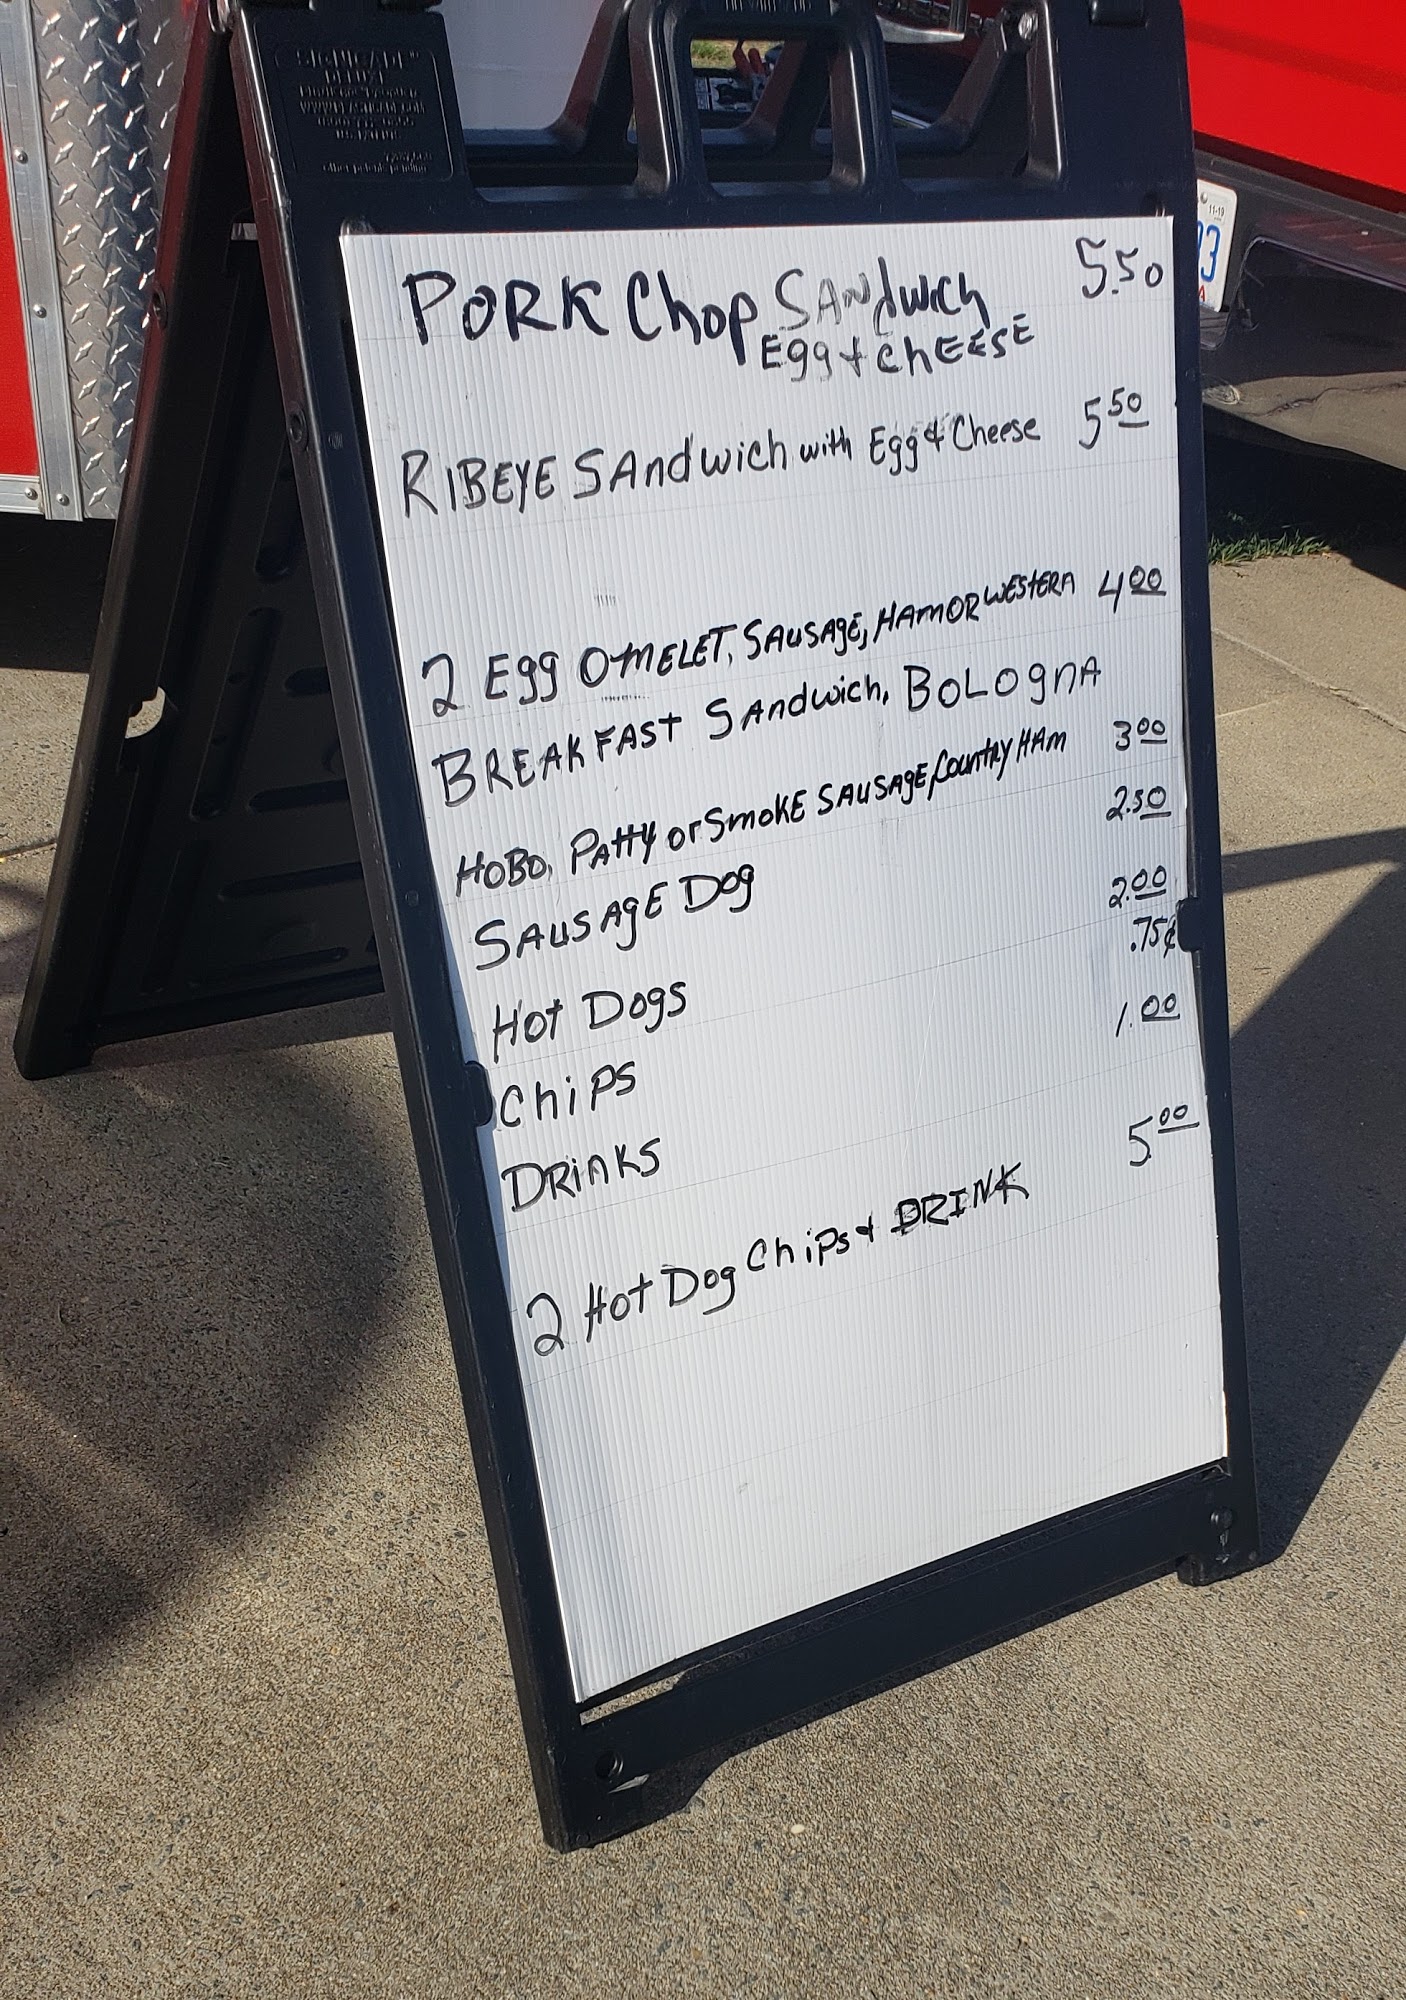 SIGNICADE®
DELUXE
PORK Chop SANdwich 5.50
Egg + chEESE
RIBEYE SANdwich with Egg & Cheese 5.50
2 Egg OMELET, SAUSAgE, HAM OR WESTERN 4.00
BREAKFAST SANdwich, BOLOgNA
HOBO, PAttY or SmOKE SAUSAgE, COUNTRY HAm 3.00
SAUSAgE Dog 2.50
Hot Dogs 2.00
ChiPS .75¢
DRiNKS 1.00
2 Hot Dog ChiPs & DRINK 5.00
11-19